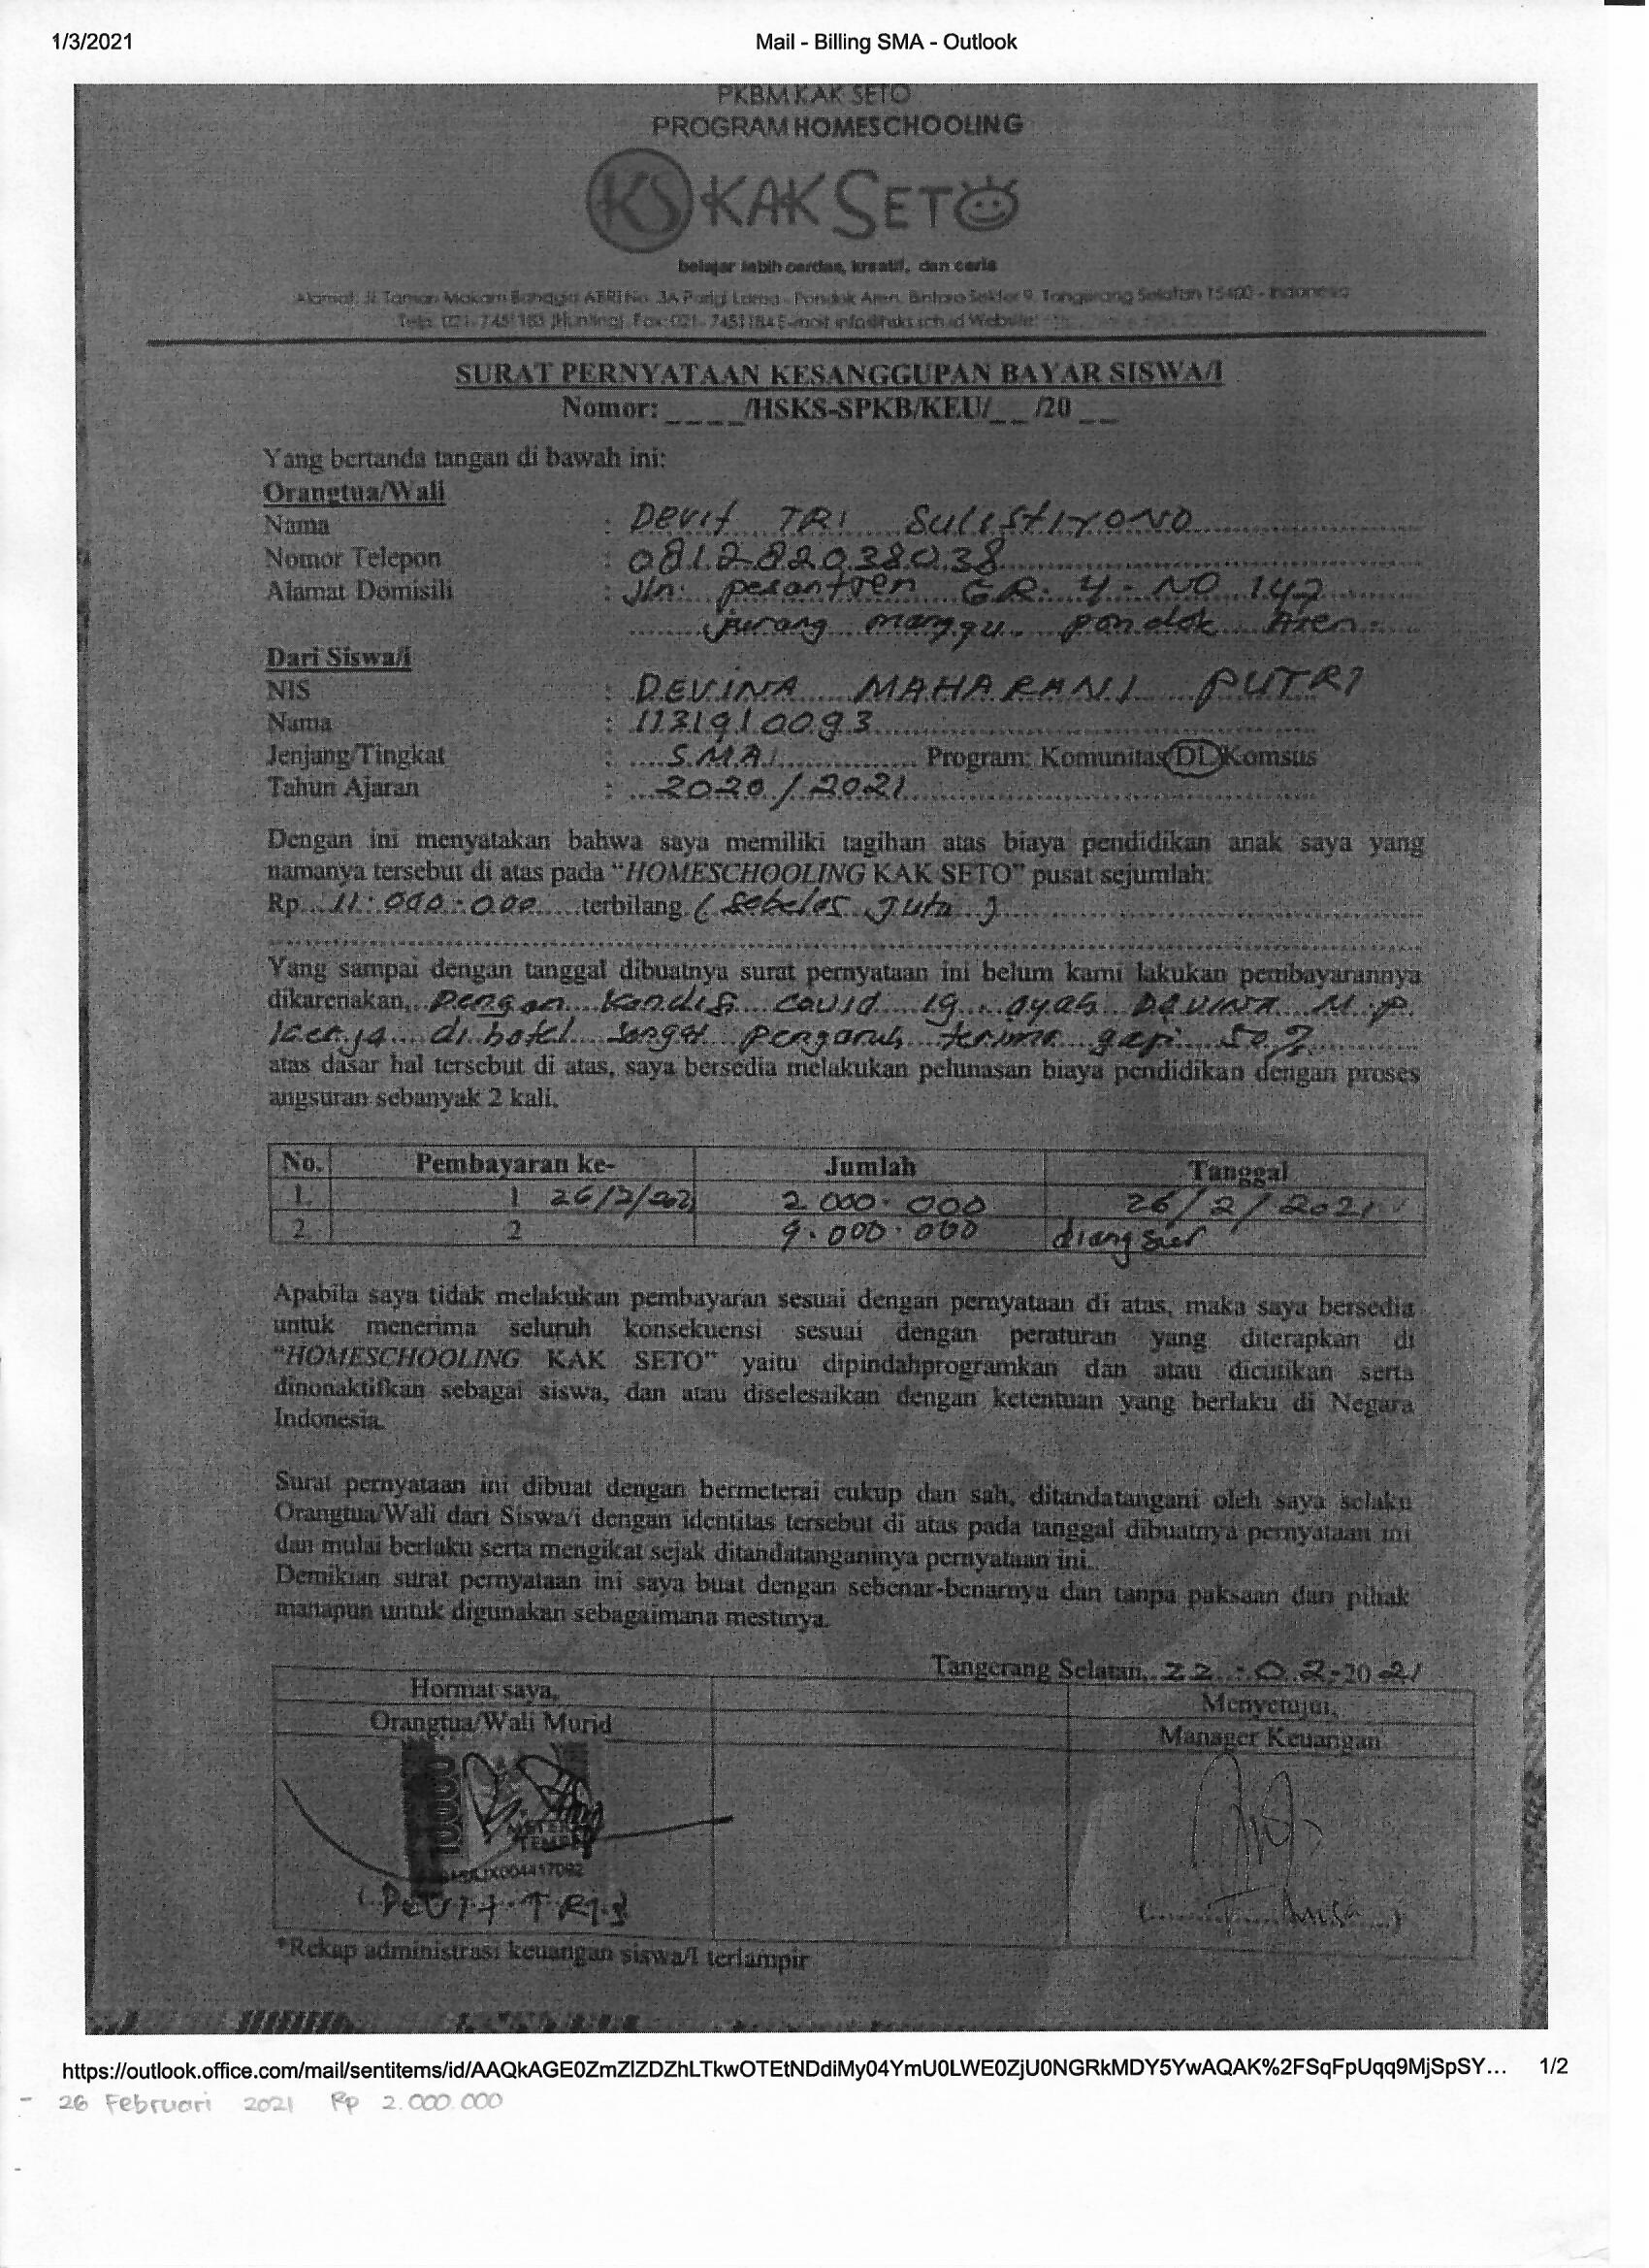 1/3/2021 Mail - Billing SMA - Outlook
PKBM KAK SETO
PROGRAM HOMESCHOOLING
KS KAK SETO
belajar lebih cerdas, kreatif, dan ceria
Alamat: Jl. Taman Makam Bahagia ABRI No. 3A Parigi Lama - Pondok Aren, Bintaro Sektor 9, Tangerang Selatan 15400 - Indonesia
Telp. (021- 7451183 (Hunting), Fax: 021- 7451184 E-mail: info@hsks.sch.id Website:
SURAT PERNYATAAN KESANGGUPAN BAYAR SISWA/I
Nomor: _ _ _ _/HSKS-SPKB/KEU/_ _ /20 _ _
Yang bertanda tangan di bawah ini:
Orangtua/Wali
Nama : Devit TRI Sulistiyono
Nomor Telepon : 081282038038
Alamat Domisili : Jln. pesantren GR. 4 - NO 147
jurang manggu pondok Aren.
Dari Siswa/i
NIS : DEVINA MAHARANI PUTRI
Nama : 1131910093
Jenjang/Tingkat : SMA Program: Komunitas/DL/Komsus
Tahun Ajaran : 2020/2021
Dengan ini menyatakan bahwa saya memiliki tagihan atas biaya pendidikan anak saya yang
namanya tersebut di atas pada "HOMESCHOOLING KAK SETO" pusat sejumlah:
Rp 11.000.000 terbilang ( Sebelas juta )
Yang sampai dengan tanggal dibuatnya surat pernyataan ini belum kami lakukan pembayarannya
dikarenakan, Dengan kondisi covid 19 ayah DEVINA M.P.
kerja di hotel sangat pengaruh terima gaji 50%
atas dasar hal tersebut di atas, saya bersedia melakukan pelunasan biaya pendidikan dengan proses
angsuran sebanyak 2 kali.
No. Pembayaran ke- Jumlah Tanggal
1. 1 26/2/202 2.000.000 26/2/2021
2. 2 9.000.000 diangsur
Apabila saya tidak melakukan pembayaran sesuai dengan pernyataan di atas, maka saya bersedia
untuk menerima seluruh konsekuensi sesuai dengan peraturan yang diterapkan di
"HOMESCHOOLING KAK SETO" yaitu dipindahprogramkan dan atau dicutikan serta
dinonaktifkan sebagai siswa, dan atau diselesaikan dengan ketentuan yang berlaku di Negara
Indonesia.
Surat pernyataan ini dibuat dengan bermeterai cukup dan sah, ditandatangani oleh saya selaku
Orangtua/Wali dari Siswa/i dengan identitas tersebut di atas pada tanggal dibuatnya pernyataan ini
dan mulai berlaku serta mengikat sejak ditandatanganinya pernyataan ini.
Demikian surat pernyataan ini saya buat dengan sebenar-benarnya dan tanpa paksaan dari pihak
manapun untuk digunakan sebagaimana mestinya.
Tangerang Selatan, 22 - 02 - 2021
Hormat saya, Menyetujui,
Orangtua/Wali Murid Manager Keuangan
10000
METERAI
TEMPEL
JX004417092
( Devit TRI S )
*Rekap administrasi keuangan siswa/I terlampir
https://outlook.office.com/mail/sentitems/id/AAQkAGE0ZmZlZDZhLTkwOTEtNDdiMy04YmU0LWE0ZjU0NGRkMDY5YwAQAK%2FSqFpUqq9MjSpSY... 1/2
- 26 Februari 2021 Rp 2.000.000
-